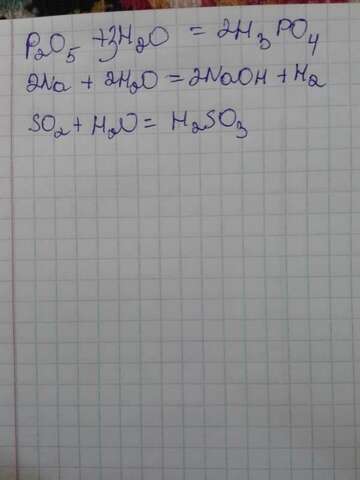 P₂O₅ + 3H₂O = 2H₃PO₄
2Na + 2H₂O = 2NaOH + H₂
SO₂ + H₂O = H₂SO₃